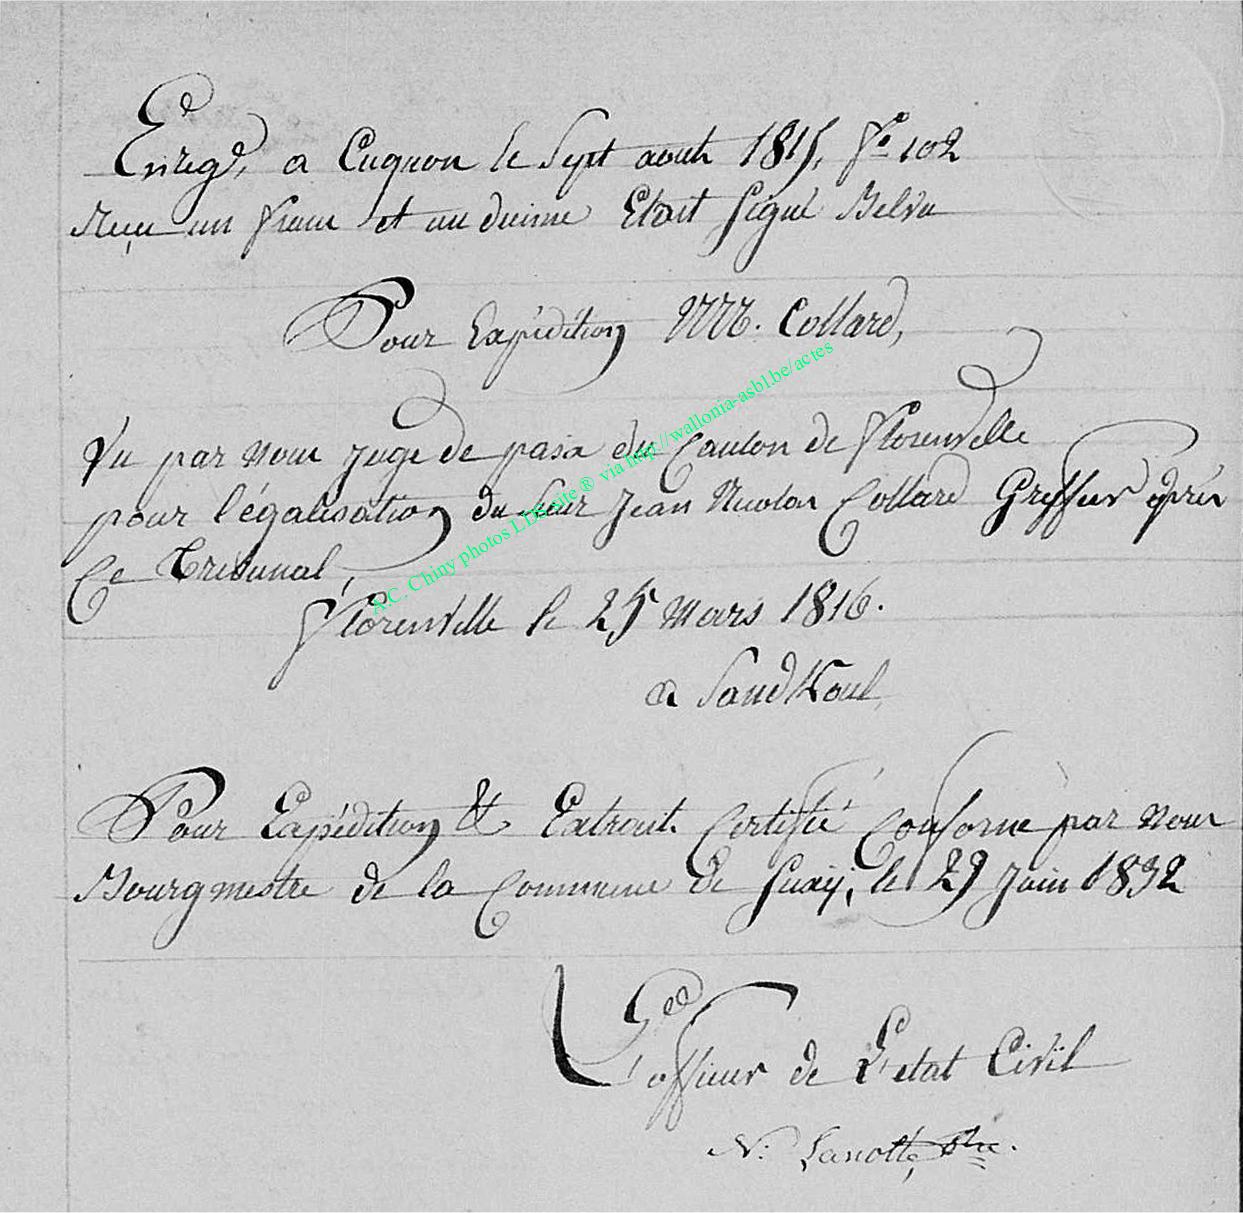 Enreg.é, a Cugnon le Sept aout 1815, f.o 102
Reçu un franc et un decime Etait Signé Belva
Pour Expédition Collard,
Vu par nous Juge de paix du Canton de Florenville
pour légalisation du Sieur Jean Nicolas Collard Greffier après
Ce Tribunal,
Florenville le 25 Mars 1816.
Pour Expédition & Extrait Certifié Conforme par nous
Bourgmestre de la Commune de Suxÿ, le 29 Juin 1832
L'officier de L'etat Civil
N: Lanotte,
A.C. Chiny photos LDS site ® via http://wallonia-asbl.be/actes